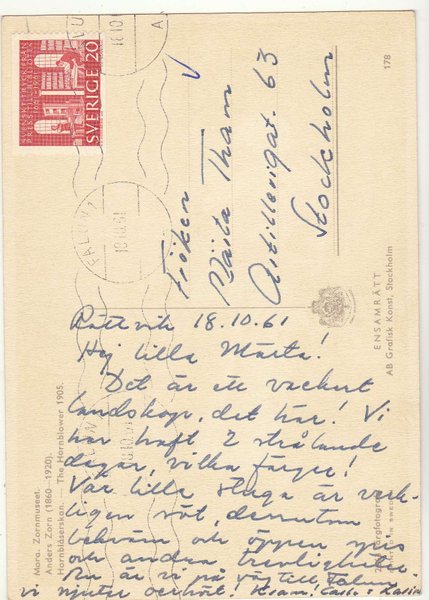 SVERIGE 20
FALUN 1
18.10.61
Fröken
Märta Tham
Artillerigat. 63
Stockholm
178
ENSAMRÄTT
AB Grafisk Konst, Stockholm
Mora. Zornmuseet.
Anders Zorn (1860–1920).
Hornblåserskan. — The Hornblower 1905.
Rättvik 18.10.61
Hej lilla Märta!
Det är ett vackert
landskap, det här! Vi
har haft 2 strålande
dagar, vilka färger!
Vår lilla stuga är verk-
ligen söt, dessutom
bekväm och öppen spis
och andra trevligheter.
Nu är vi på väg till Falun
vi njuter oerhört! Kram,